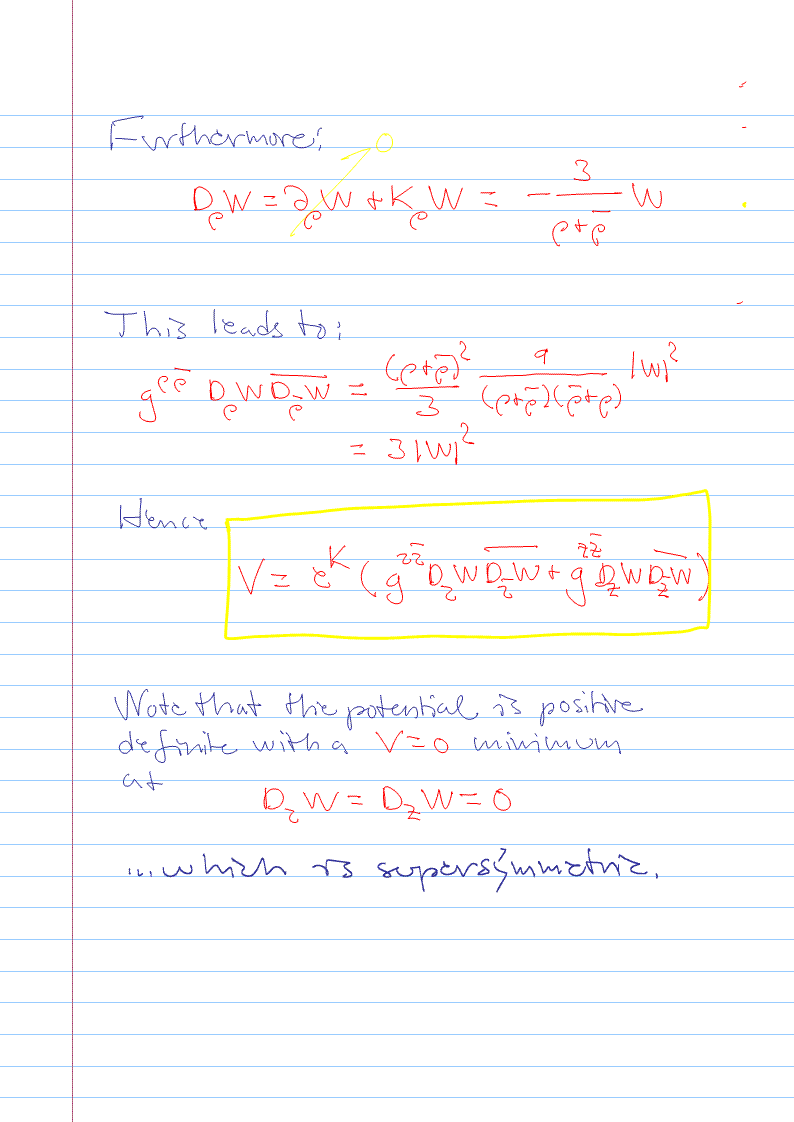 Furthermore:
0
D_ρ W = ∂_ρ W + K_ρ W = - 3/(ρ+ρ̄) W
This leads to:
g^{ρρ̄} D_ρ W \overline{D_ρ W} = (ρ+ρ̄)²/3 9/((ρ+ρ̄)(ρ̄+ρ)) |W|²
= 3|W|²
Hence
V = e^K (g^{τ\bar{τ}} D_τ W \overline{D_τ W} + g^{z\bar{z}} D_z W \overline{D_z W})
Note that the potential is positive
definite with a V=0 minimum
at
D_τ W = D_z W = 0
... which is supersymmetric.